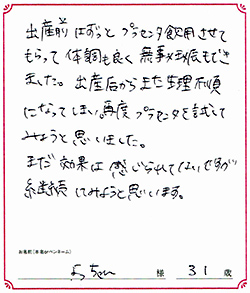 出産前はずっとプラセンタ飲用させて
もらって体調も良く無事妊娠もでき
ました。出産后からまた生理不順
になってしまい再度プラセンタを試して
みようと思いました。
まだ効果は感じられてないですが
継続してみようと思います。
お名前(本名かペンネーム)
ちゃん 様 31歳